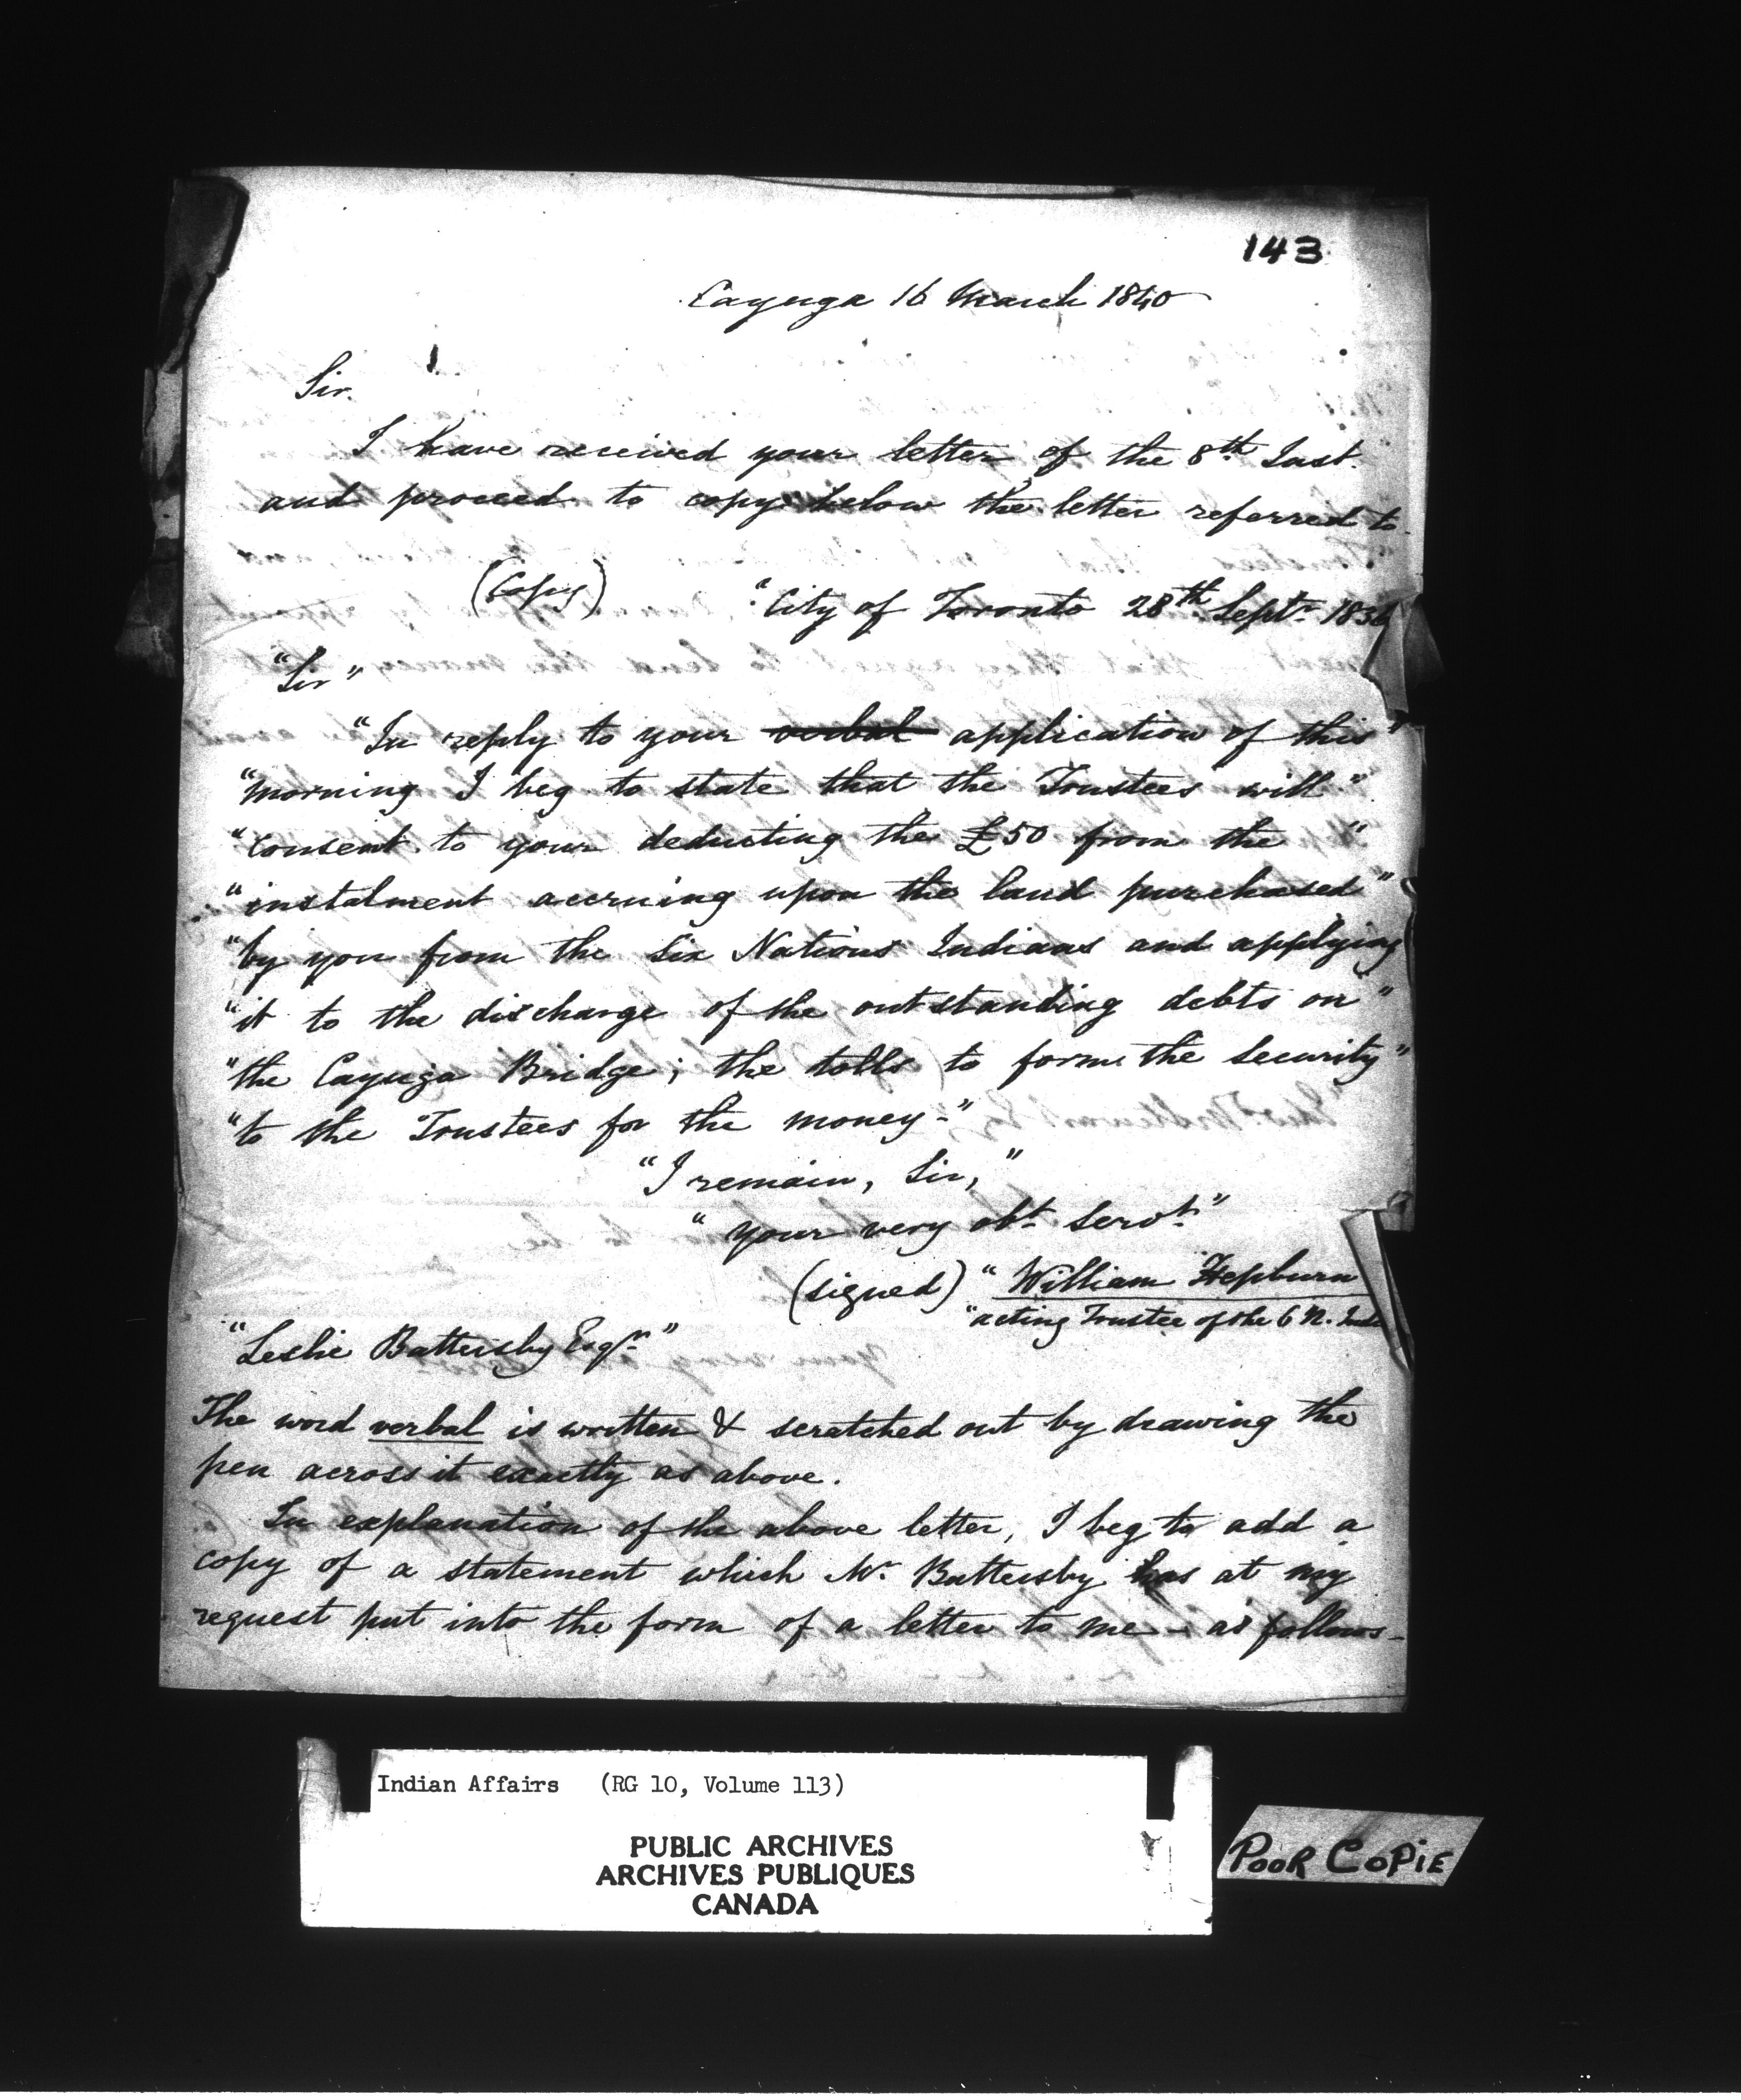 143
Cayuga 16 March 1840
Sir.
I have received your letter of the 8th Inst.
and proceed to copy below the letter referred to
(Copy) "City of Toronto 28th Septr 1836
"Sir"
"In reply to your verbal application of this"
"morning I beg to state that the Trustees will"
"consent to your deducting the £50 from the"
"instalment accruing upon the land purchased"
"by you from the Six Nations Indians and applying
"it to the discharge of the outstanding debts on"
"the Cayuga Bridge; the tolls to form the security"
"to the Trustees for the money-"
"I remain, Sir,"
"your very obt Servt"
(signed) "William Hepburn
"acting Trustee of the 6 N. Inds
"Leslie Battersby Esqr"
The word verbal is written & scratched out by drawing the
pen across it exactly as above.
In explanation of the above letter, I beg to add a
copy of a statement which Mr Battersby has at my
request put into the form of a letter to me - as follows-
Indian Affairs (RG 10, Volume 113)
PUBLIC ARCHIVES
ARCHIVES PUBLIQUES
CANADA
POOR COPIE